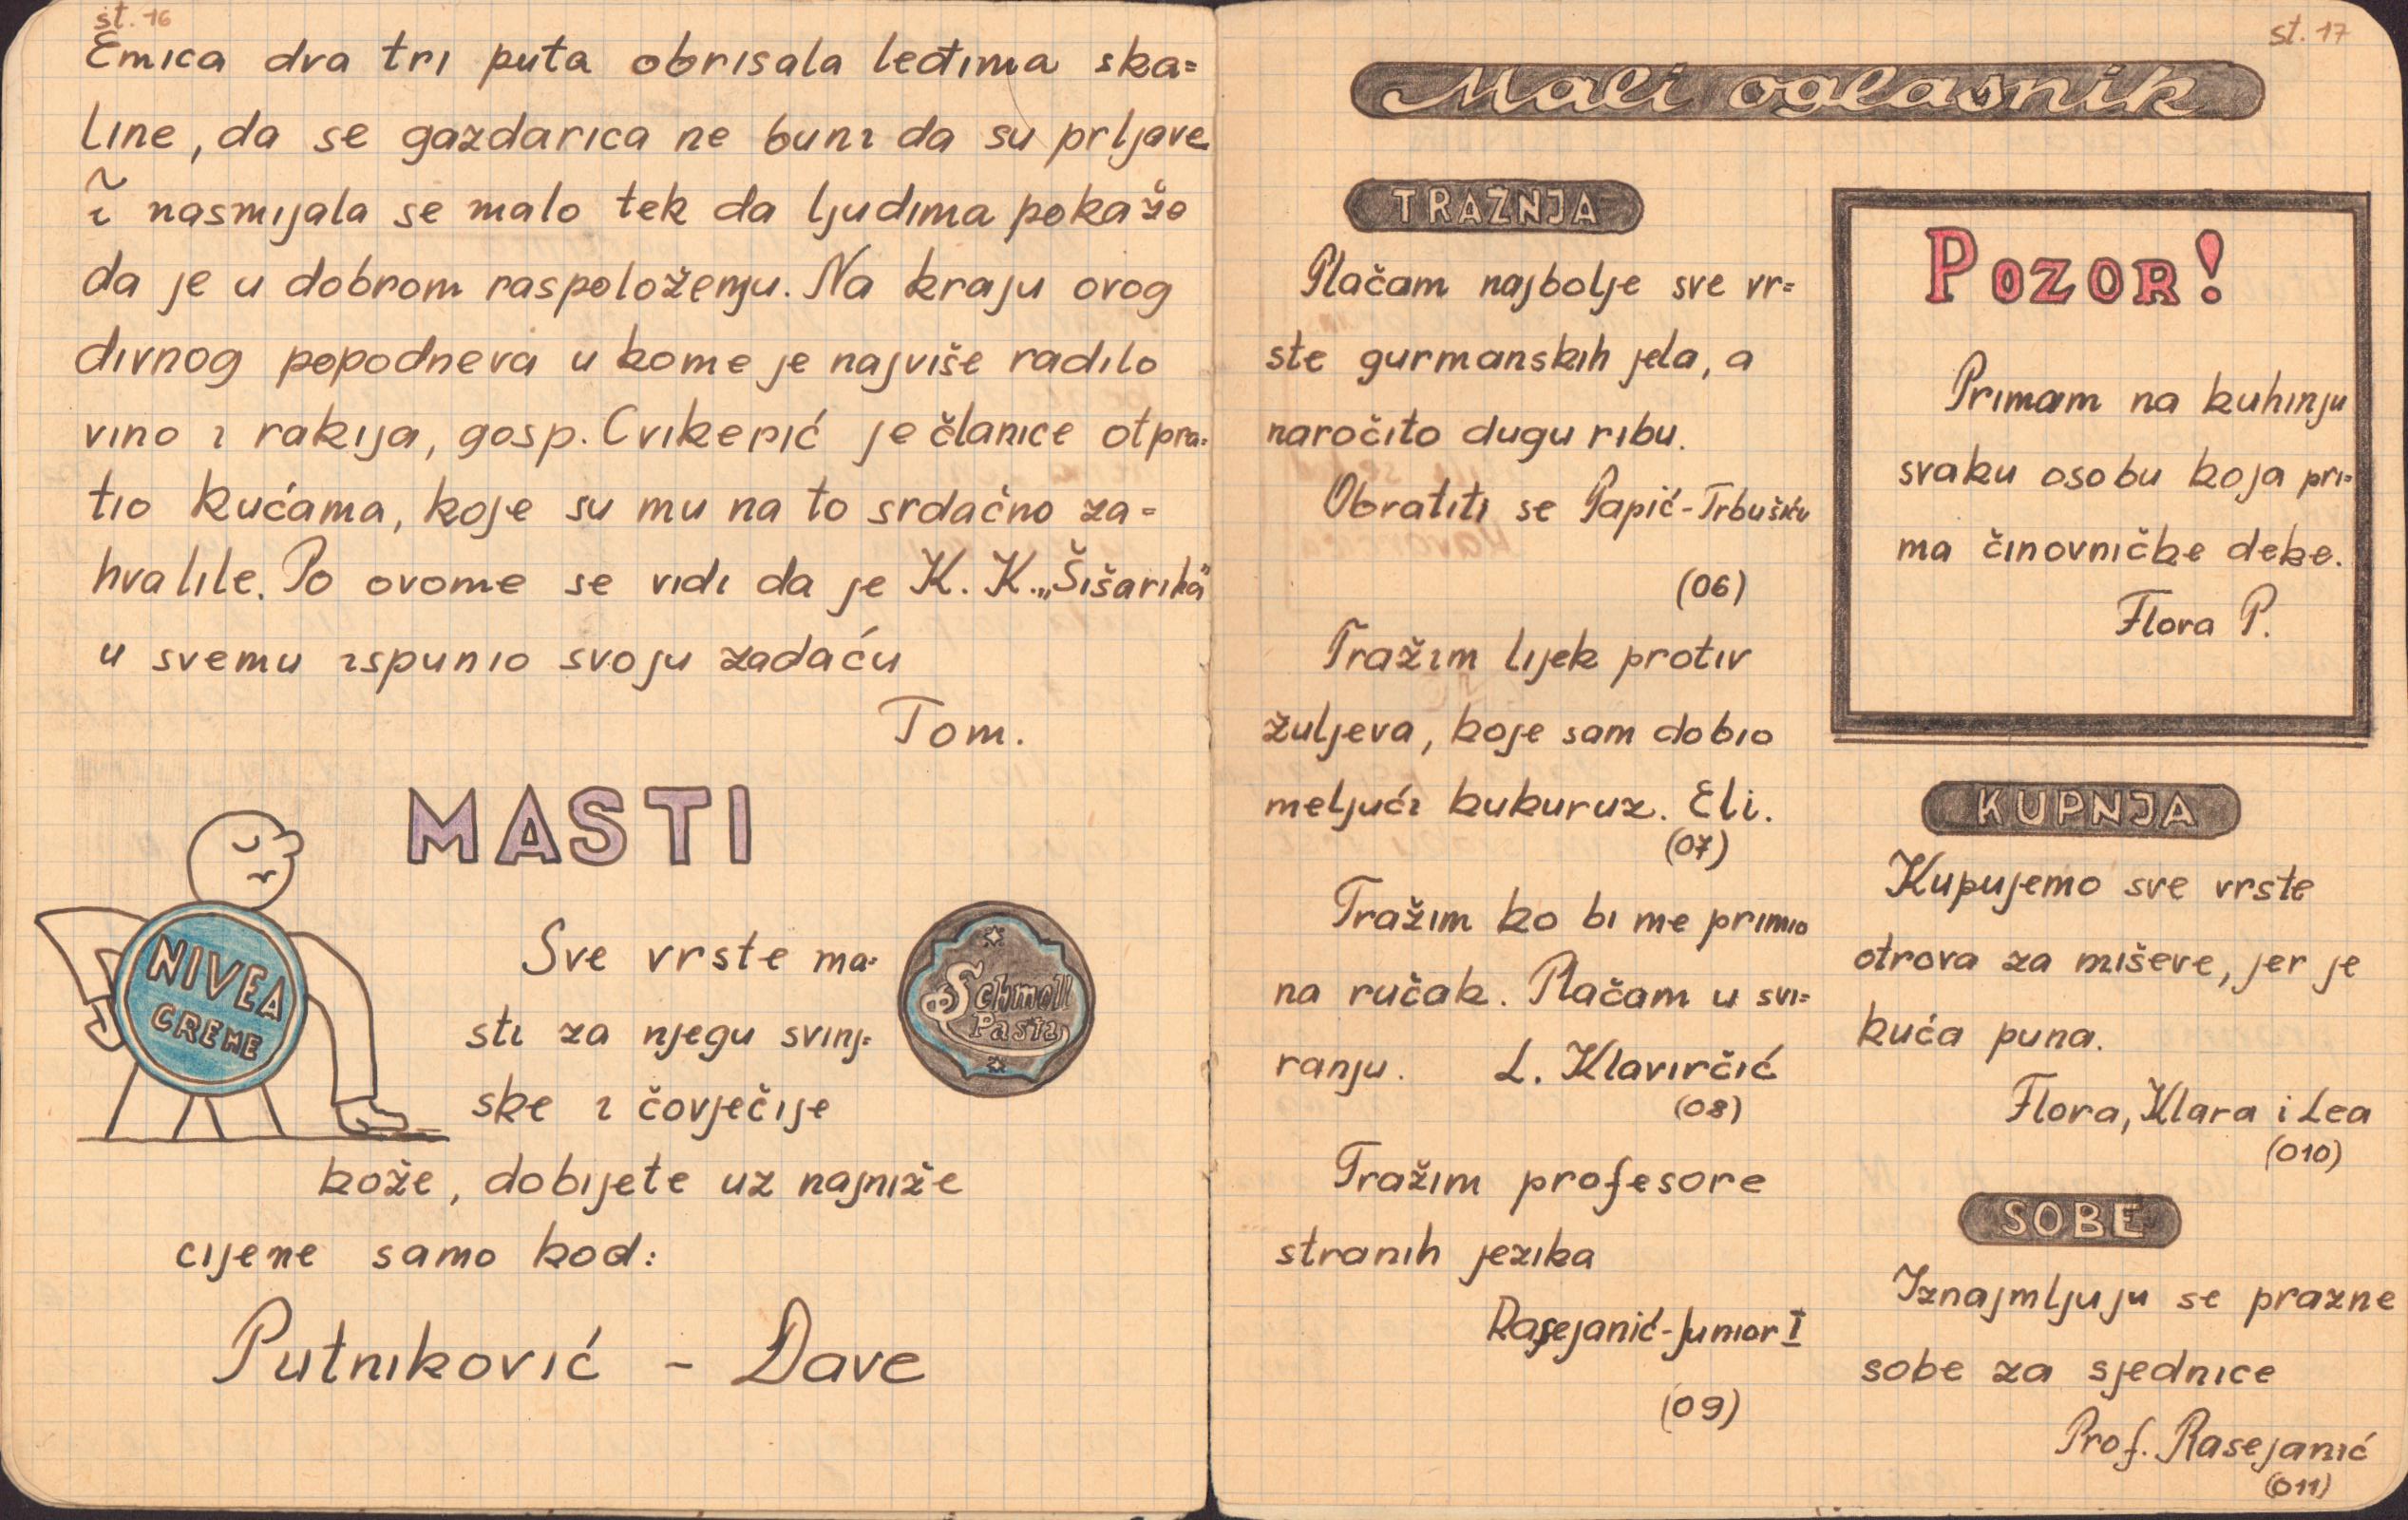 st. 16
Emica dva tri puta obrisala leđima ska=
line, da se gazdarica ne buni da su prljave
i nasmijala se malo tek da ljudima pokaže
da je u dobrom raspoloženju. Na kraju ovog
divnog popodneva u kome je najviše radilo
vino i rakija, gosp. Cvikerić je članice otpra=
tio kućama, koje su mu na to srdačno za-
hvalile. Po ovome se vidi da je K. K. „Šišarika"
u svemu ispunio svoju zadaću
Tom.
MASTI
NIVEA
CREME
Sve vrste ma=
sti za njegu svinj=
ske i čovječije
kože, dobijete uz najniže
cijene samo kod:
Putniković - Dave
Schmoll
Pasta
st. 17
Mali oglasnik
TRAŽNJA
Plaćam najbolje sve vr=
ste gurmanskih jela, a
naročito dugu ribu.
Obratiti se Papić-Trbušiću
(06)
Tražim lijek protiv
žuljeva, koje sam dobio
meljući kukuruz. Eli.
(07)
Tražim ko bi me primio
na ručak. Plačam u svi=
ranju. L. Klavirčić
(08)
Tražim profesore
stranih jezika
Rasejanić-Junior I
(09)
POZOR!
Primam na kuhinju
svaku osobu koja pri=
ma činovničke deke.
Flora P.
KUPNJA
Kupujemo sve vrste
otrova za miševe, jer je
kuća puna.
Flora, Klara i Lea
(010)
SOBE
Iznajmljuju se prazne
sobe za sjednice
Prof. Rasejanić
(011)